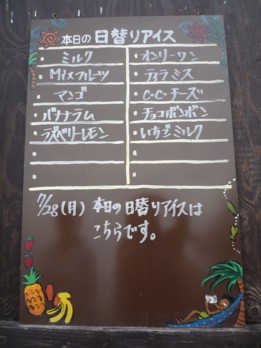 本日の日替りアイス
・ミルク
・Mixフルーツ
・マンゴ
・バナナラム
・ラズベリーレモン
・オンリーワン
・ティラミス
・C・C・チーズ
・チョコボンボン
・いちごミルク
7/28(月) 本日の日替りアイスは
こちらです。